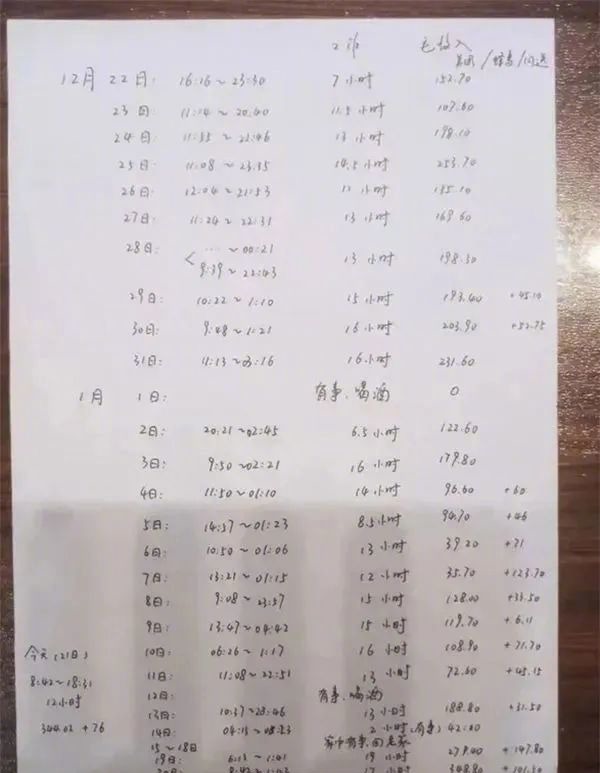 工作 毛收入
美团/蜂鸟/闪送
12月 22日: 16:16~23:30 7小时 152.70
23日: 11:14~20:40 11.5小时 107.60
24日: 11:35~21:46 13小时 198.10
25日: 11:08~23:35 14.5小时 253.70
26日: 12:04~21:53 11小时 135.10
27日: 11:24~22:31 13小时 169.60
28日: < ... ~00:21
9:39~22:43 13小时 198.30
29日: 10:22~1:10 15小时 193.40 +45.10
30日: 9:48~1:21 16小时 203.90 +52.75
31日: 9:13~03:16 16小时 231.60
1月 1日: 有事、喝酒 0
2日: 20:21~02:45 6.5小时 122.60
3日: 9:50~02:21 16小时 179.80
4日: 11:50~01:10 14小时 96.60 +60
5日: 14:37~01:23 8.5小时 94.70 +46
6日: 10:50~01:06 13小时 39.20 +71
7日: 13:21~01:15 12小时 35.70 +123.70
8日: 9:08~23:57 15小时 128.00 +33.50
9日: 13:47~04:42 15小时 119.70 +6.11
10日: 06:26~1:17 16小时 108.90 +71.70
11日: 11:08~22:51 13小时 72.60 +45.15
12日: 有事、喝酒
13日: 10:37~23:46 13小时 188.80 +31.50
14日: 04:15~08:23 2小时(有事) 42.00
15~18日 家中有事,回老家
19日: 6:13~1:41 19小时 279.00 +147.80
20日: 8:42~1:02 17小时 348.80 +101.50
今天(21日)
8:42~18:31
12小时
344.02+76